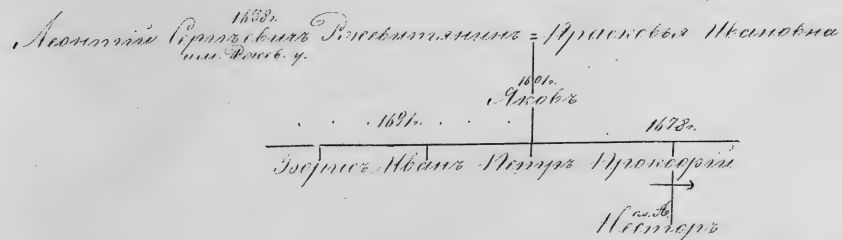 1638г.
Леонтій Сергѣевичъ Ржевитянинъ = Прасковья Ивановна
им. Ржев. у.
1601г.
Яковъ
1691г. 1678г.
Борисъ Иванъ Петръ Прокофій
Несторъ